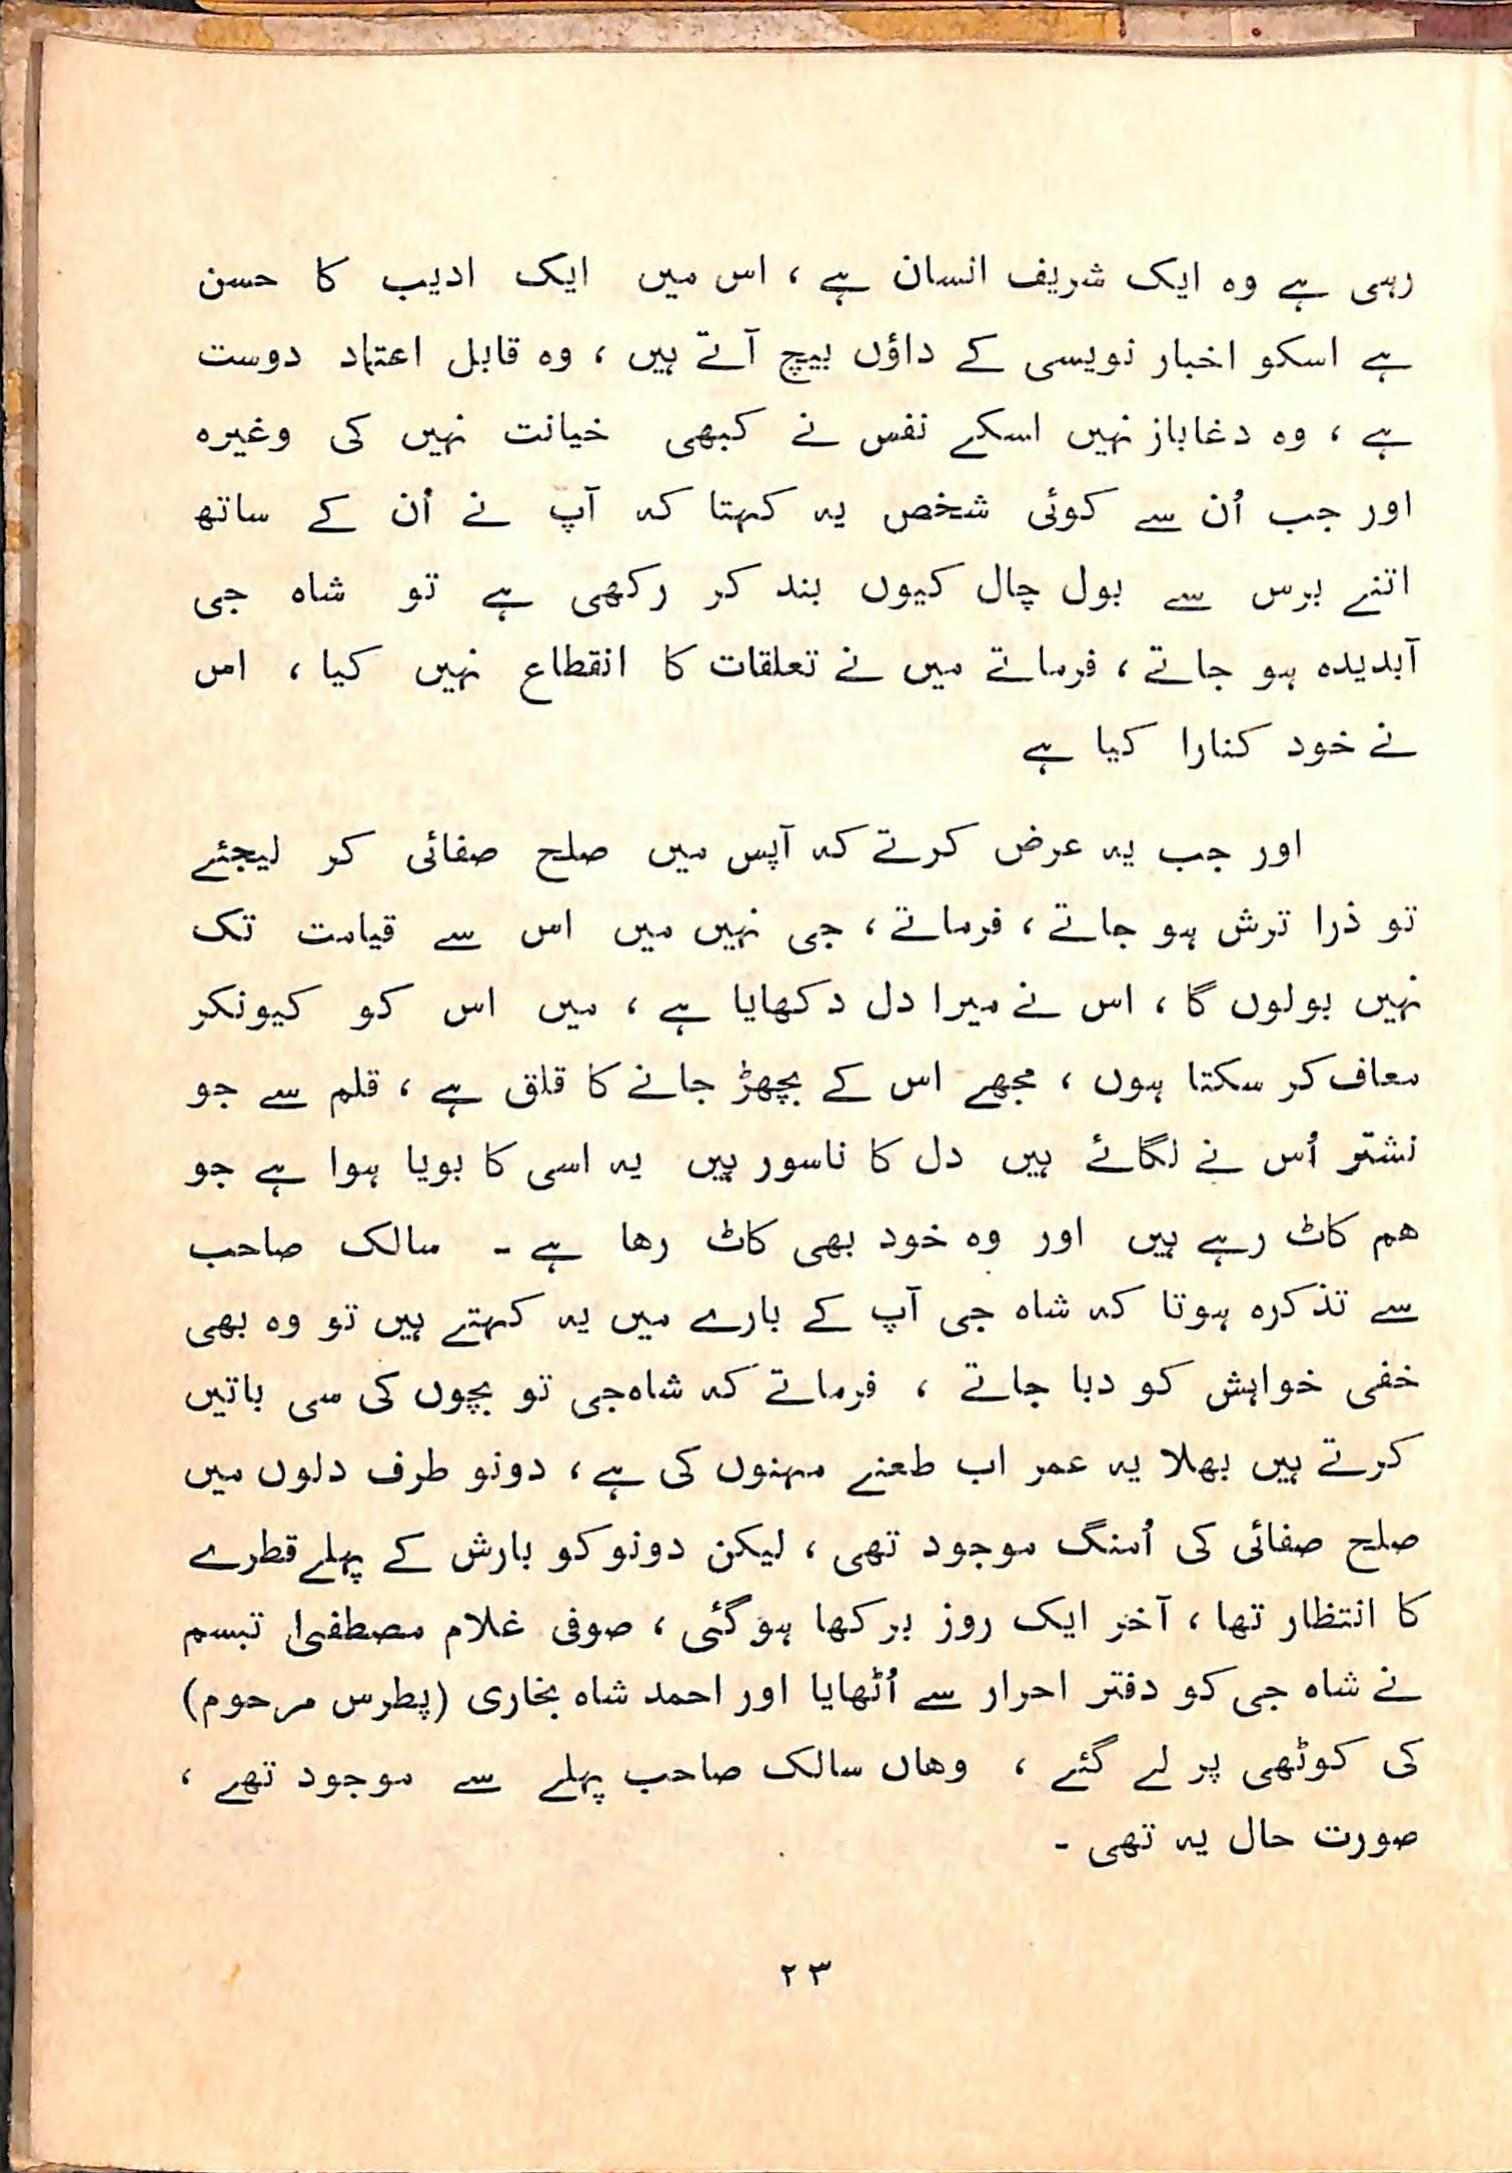 رہی ہے وہ ایک شریف انسان ہے ، اس میں ایک ادیب کا حسن
ہے اسکو اخبار نویسی کے داؤں بیچ آتے ہیں ، وہ قابل اعتماد دوست
ہے ، وہ دغاباز نہیں اسکے نفس نے کبھی خیانت نہیں کی وغیرہ
اور جب اُن سے کوئی شخص یہ کہتا کہ آپ نے اُن کے ساتھ
اتنے برس سے بول چال کیوں بند کر رکھی ہے تو شاہ جی
آبدیدہ ہو جاتے ، فرماتے میں نے تعلقات کا انقطاع نہیں کیا ، اس
نے خود کنارا کیا ہے
اور جب یہ عرض کرتے کہ آپس میں صلح صفائی کر لیجئے
تو ذرا ترش ہو جاتے ، فرماتے ، جی نہیں میں اس سے قیامت تک
نہیں بولوں گا ، اس نے میرا دل دکھایا ہے ، میں اس کو کیونکر
معاف کر سکتا ہوں ، مجھے اس کے بچھڑ جانے کا قلق ہے ، قلم سے جو
نشتر اُس نے لگائے ہیں دل کا ناسور ہیں یہ اسی کا بویا ہوا ہے جو
ھم کاٹ رہے ہیں اور وہ خود بھی کاٹ رھا ہے ۔ سالک صاحب
سے تذکرہ ہوتا کہ شاہ جی آپ کے بارے میں یہ کہتے ہیں تو وہ بھی
خفی خواہش کو دبا جاتے ، فرماتے کہ شاہ جی تو بچوں کی سی باتیں
کرتے ہیں بھلا یہ عمر اب طعنے مہنوں کی ہے ، دونو طرف دلوں میں
صلح صفائی کی اُمنگ موجود تھی ، لیکن دونو کو بارش کے پہلے قطرے
کا انتظار تھا ، آخر ایک روز برکھا ہوگئی ، صوفی غلام مصطفیٰ تبسم
نے شاہ جی کو دفتر احرار سے اُٹھایا اور احمد شاہ بخاری (پطرس مرحوم)
کی کوٹھی پر لے گئے ، وھاں سالک صاحب پہلے سے موجود تھے ،
صورت حال یہ تھی ۔
۲۳